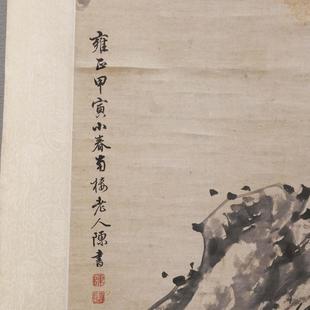 雍正甲寅小春南楼老人陳書